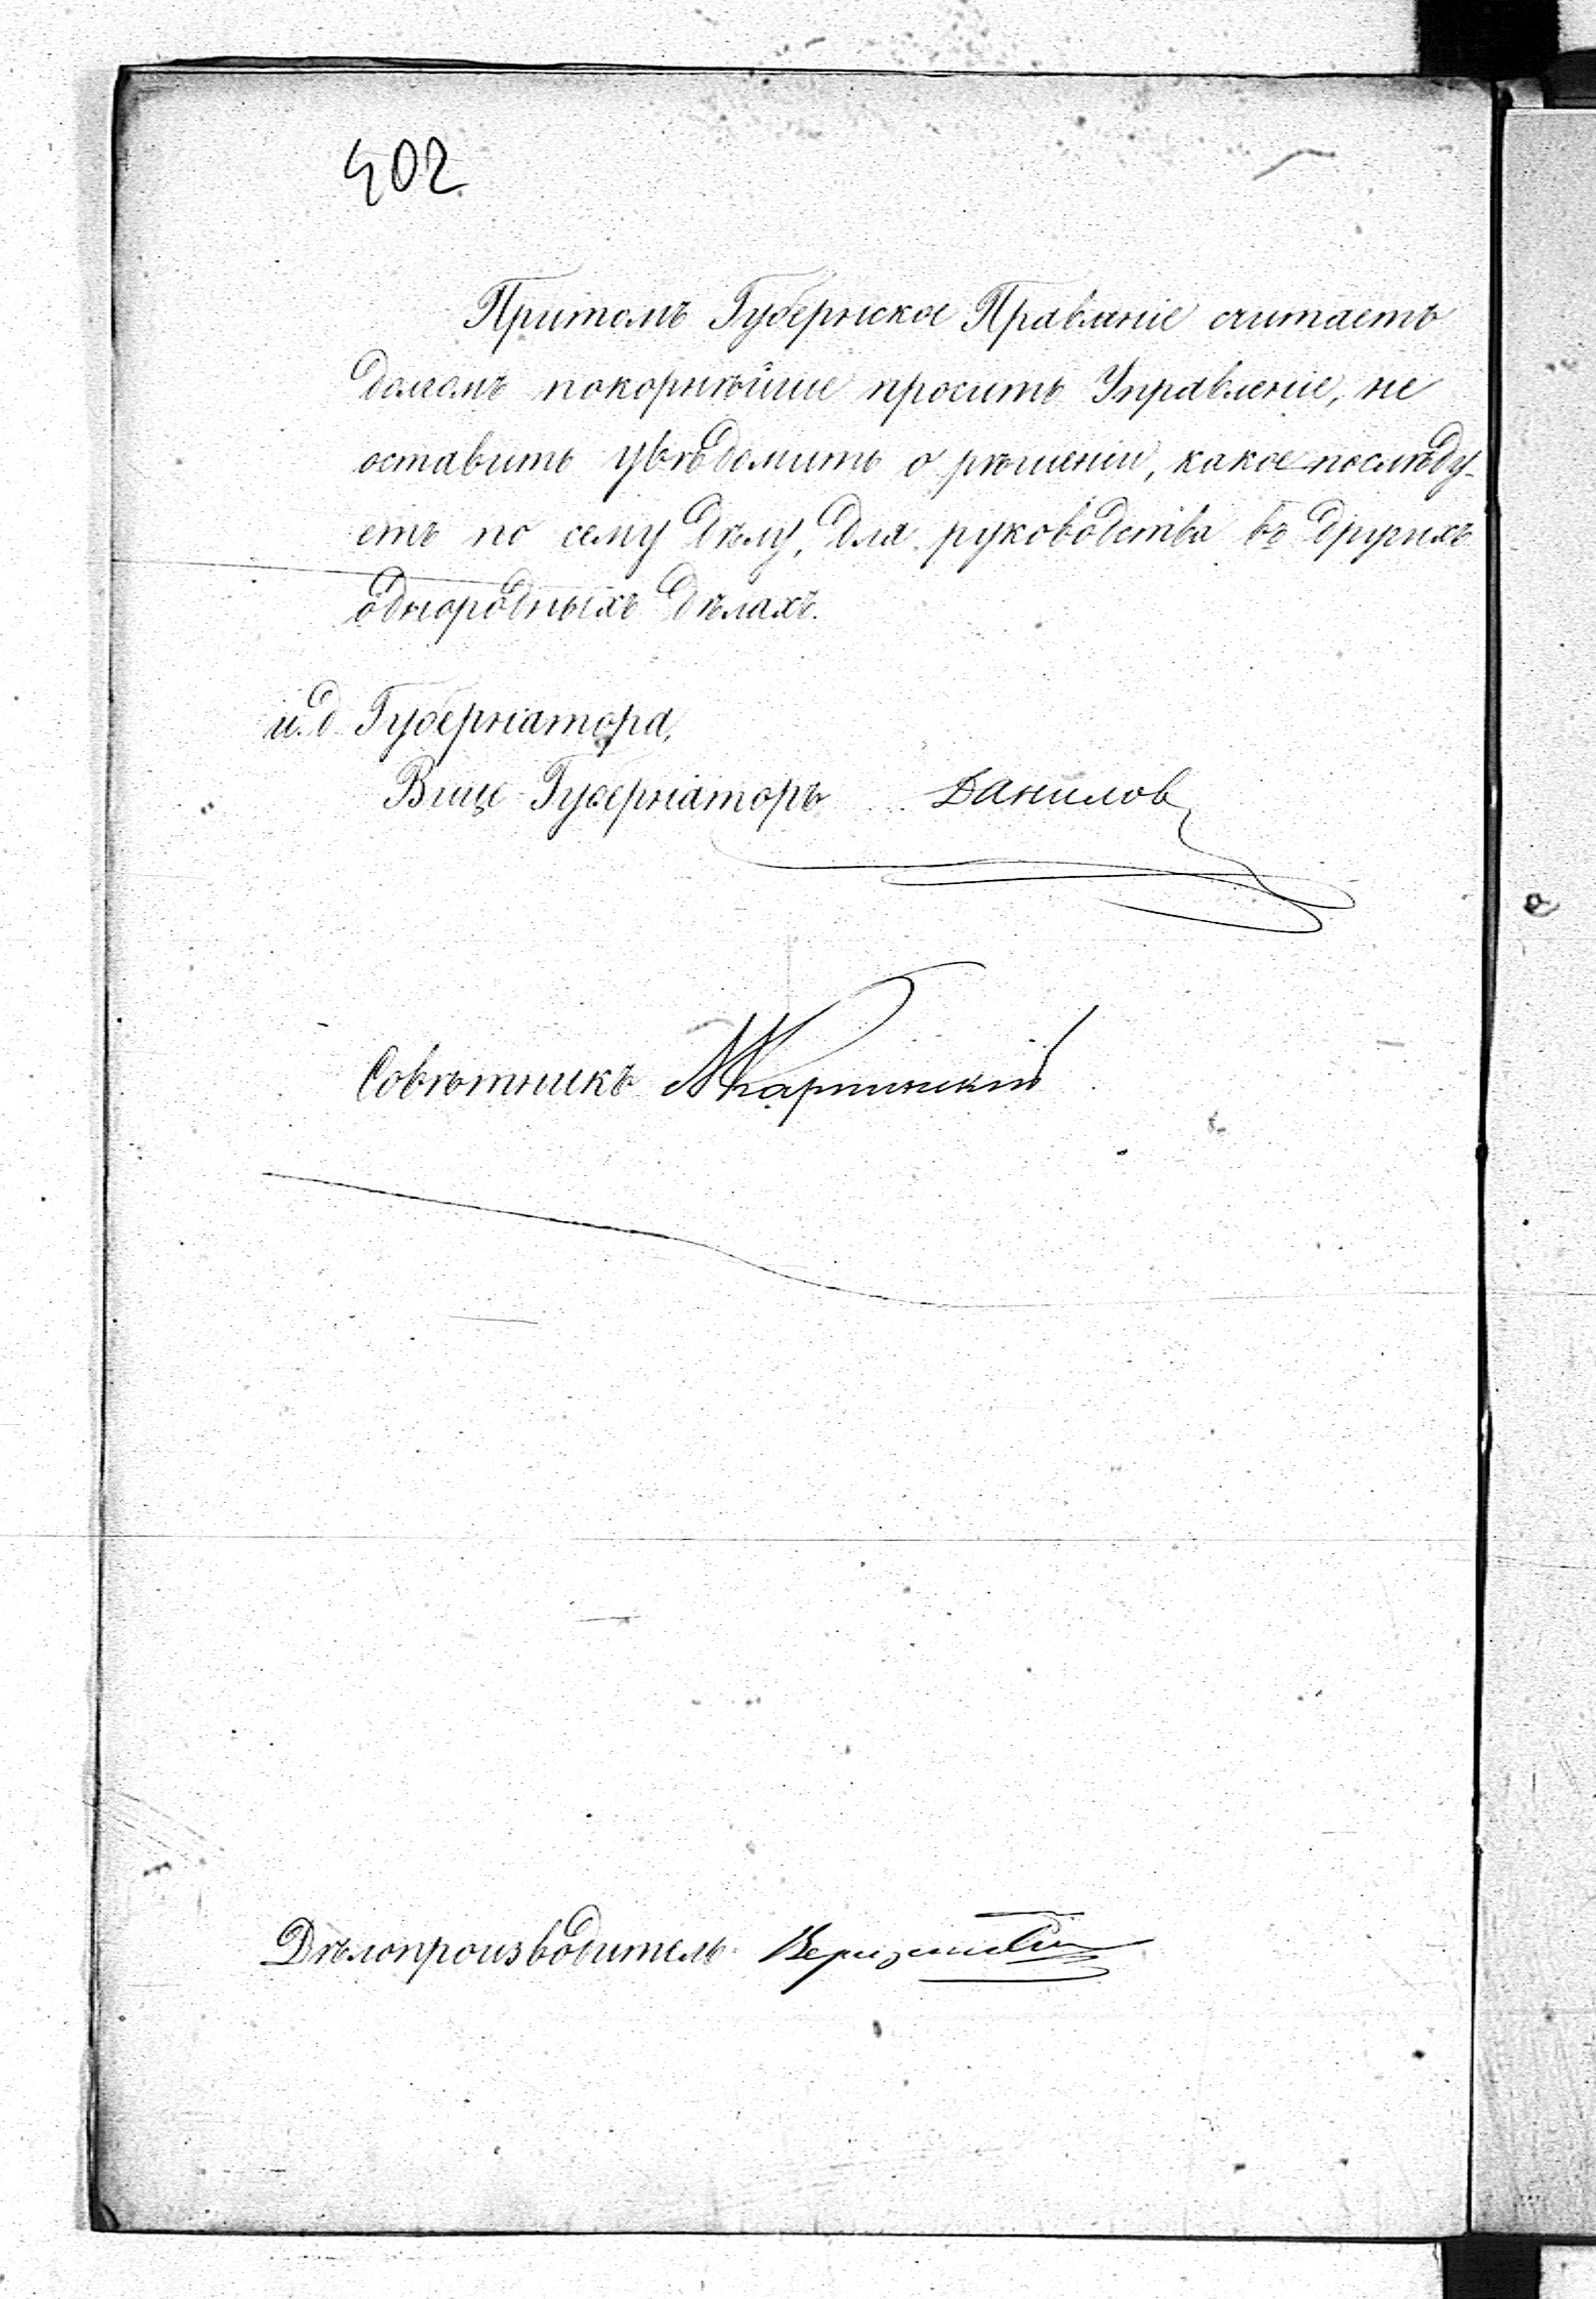 402
Притомъ Губернское Правленіе считаетъ
долгомъ покорнѣйше просить Управленіе, не
оставить увѣдомить о рѣшеніи, какое послѣду-
етъ по сему дѣлу, для руководства въ другихъ
однородныхъ дѣлахъ.
и. д. Губернатора,
Вице-Губернаторъ Данилов
Совѣтникъ
Дѣлопроизводитель